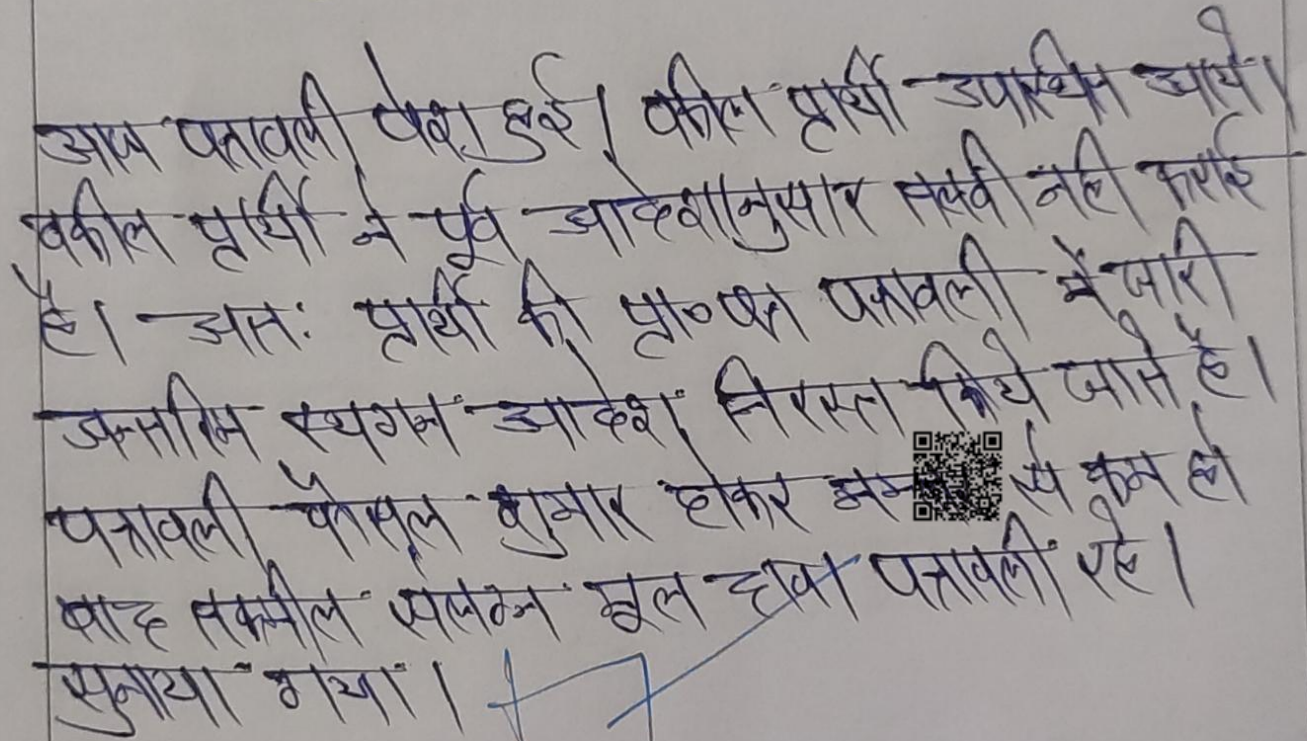 आज पत्रावली पेश हुई। वकील प्रार्थी उपस्थित आये।
वकील प्रार्थी ने पूर्व आदेशानुसार तलवी नही कराई
है। अतः प्रार्थी की प्रा० पत्र पत्रावली में जारी
अन्तरिम स्थगन आदेश निरस्त किये जाते है।
पत्रावली फैसल शुमार होकर से कम हो
बाद तकमील संलग्न मूल दावा पत्रावली रहे।
सुनाया गया।